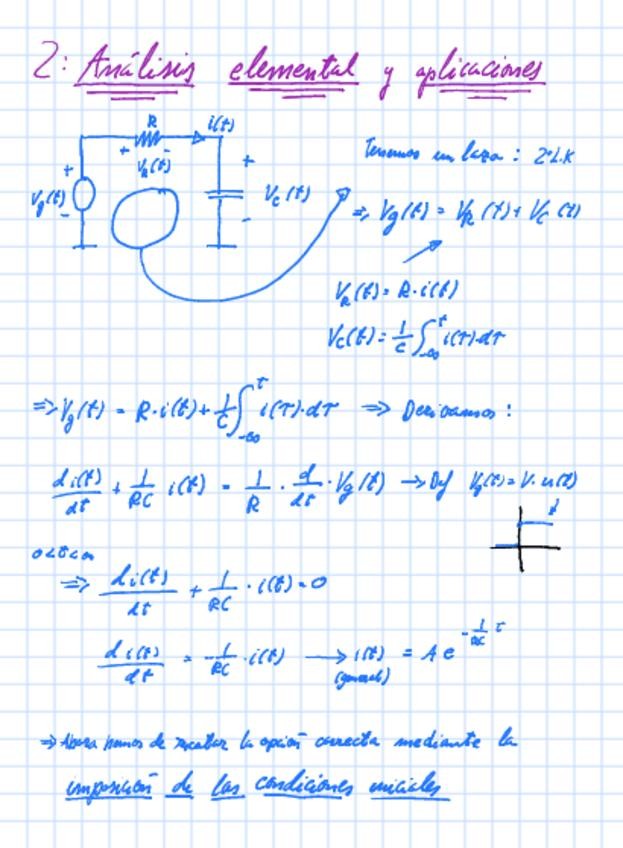 2: Análisis elemental y aplicaciones
R i(t)
+ -
VR(t)
+ Vg(t) -
+ VC(t) -
Tenemos un lazo: 2ºL.K
⇒ Vg(t) = VR(t) + VC(t)
VR(t) = R·i(t)
VC(t) = 1/C ∫_{-∞}^{t} i(τ)·dτ
⇒ Vg(t) = R·i(t) + 1/C ∫_{-∞}^{t} i(τ)·dτ ⇒ Derivamos:
di(t)/dt + 1/RC i(t) = 1/R · d/dt · Vg(t) → Def Vg(t) = V·u(t)
0<t<∞
⇒ di(t)/dt + 1/RC · i(t) = 0
di(t)/dt = -1/RC · i(t) → i(t) = A e^{-1/RC t}
(general)
⇒ Ahora hemos de rescatar la opción correcta mediante la
imposición de las condiciones iniciales